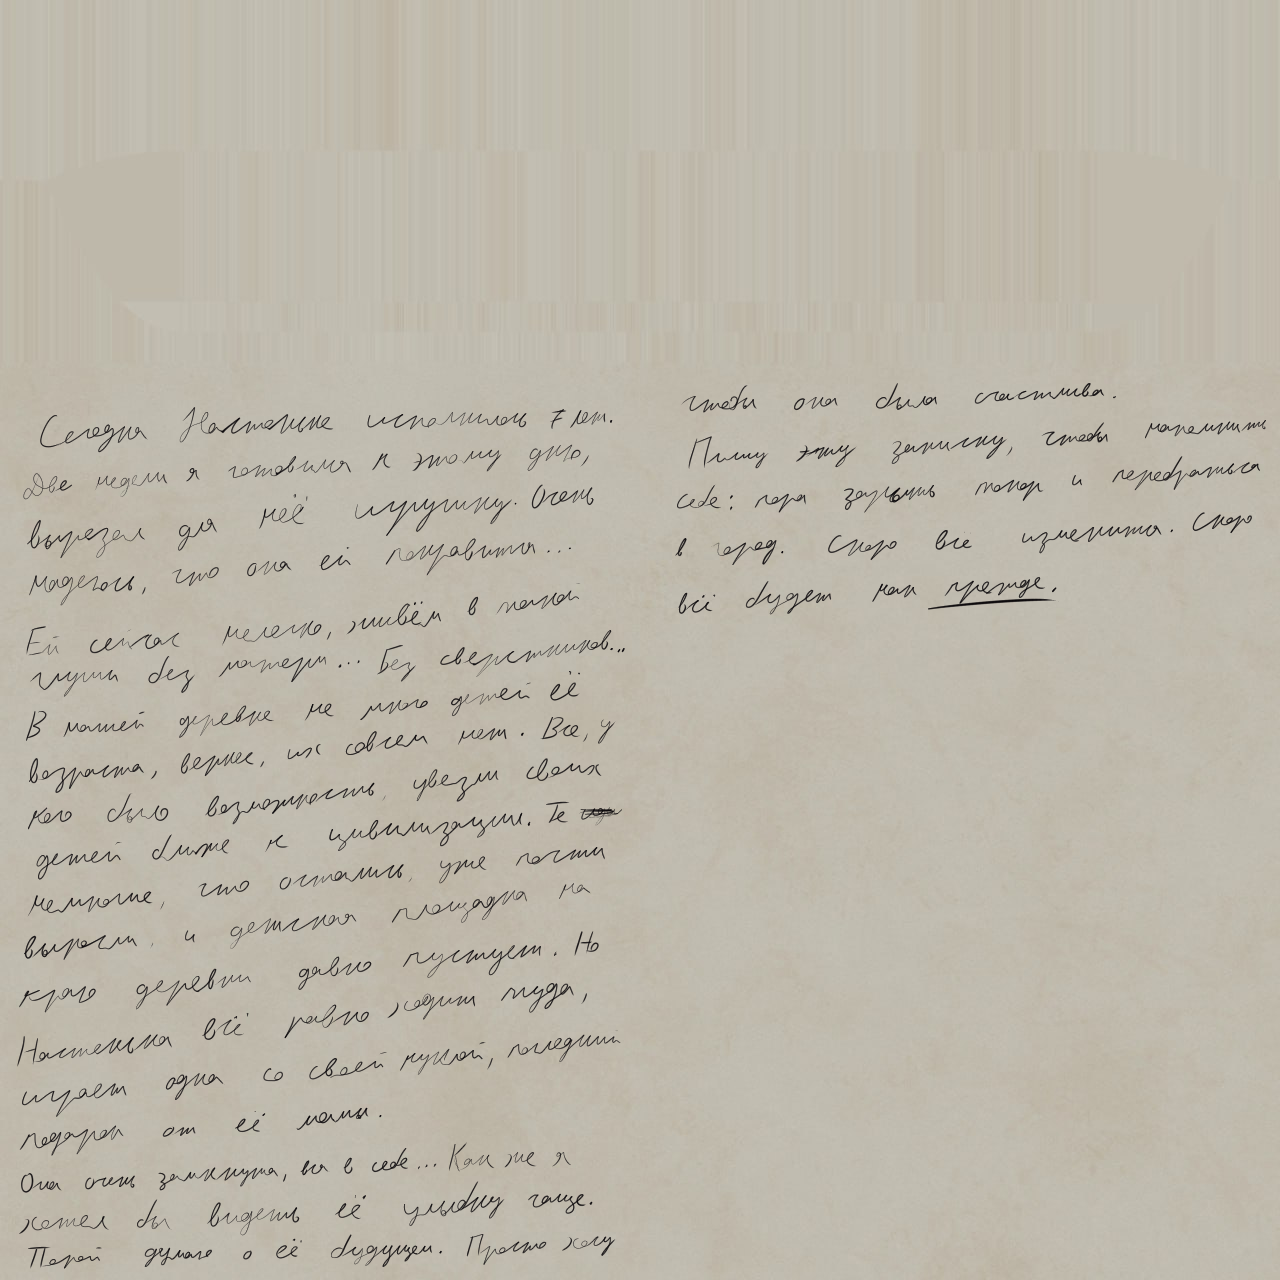 Сегодня Настеньке исполнилось 7 лет.
Две недели я готовился к этому дню,
вырезал для неё игрушку. Очень
надеюсь, что она ей понравится...
Ей сейчас нелегко, живём в такой
глуши без матери... Без сверстников...
В нашей деревне не много детей её
возраста, вернее, их совсем нет. Все, у
кого было возможность, увезли своих
детей ближе к цивилизации. Те
немногие, что остались, уже почти
выросли, и детская площадка на
краю деревни давно пустует. Но
Настенька всё равно ходит туда,
играет одна со своей куклой, последний
подарок от её мамы.
Она очень замкнута, вся в себе... Как же я
хотел бы видеть её улыбку чаще.
Порой думаю о её будущем. Просто хочу
чтобы она была счастлива.
Пишу эту записку, чтобы напомнить
себе: пора зарыть топор и перебраться
в город. Скоро все изменится. Скоро
всё будет как прежде.